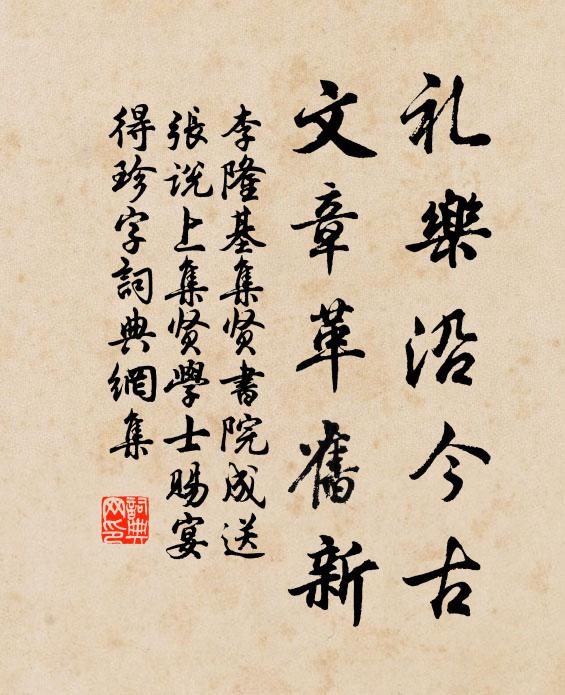 礼樂沿今古
文章革舊新
李隆基集贤書院成送
張说上集贤學士賜宴
得珍字詞典網集
詞典
网印